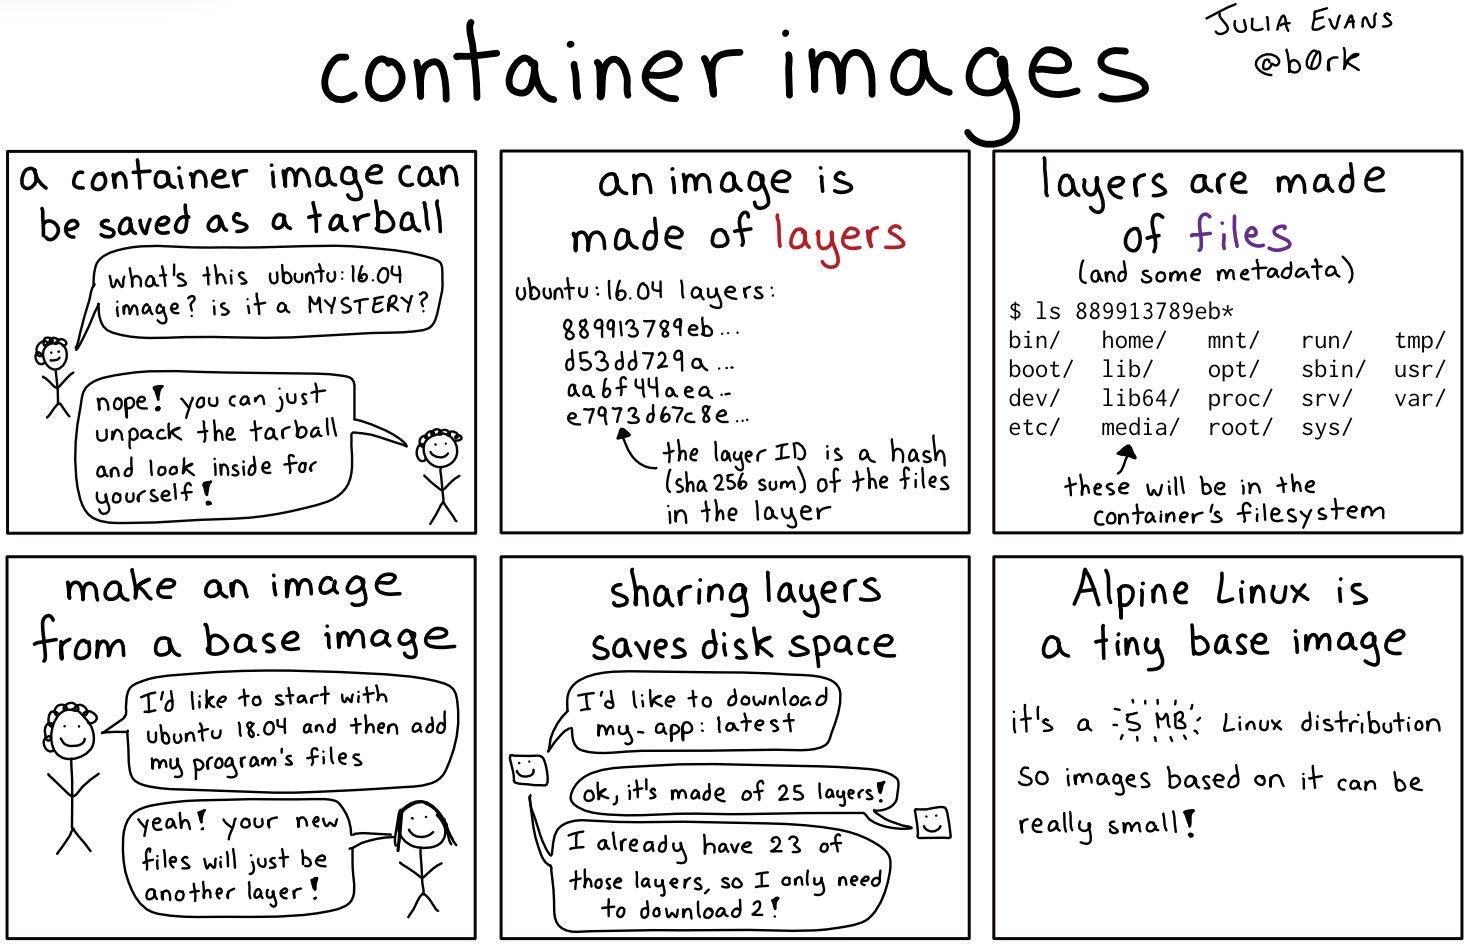 container images
JULIA EVANS
@b0rk
a container image can
be saved as a tarball
what's this ubuntu:16.04
image? is it a MYSTERY?
nope! you can just
unpack the tarball
and look inside for
yourself!
an image is
made of layers
ubuntu:16.04 layers:
889913789eb...
d53dd729a...
aa6f44aea...
e7973d67c8e...
the layer ID is a hash
(sha 256 sum) of the files
in the layer
layers are made
of files
(and some metadata)
$ ls 889913789eb*
bin/ home/ mnt/ run/ tmp/
boot/ lib/ opt/ sbin/ usr/
dev/ lib64/ proc/ srv/ var/
etc/ media/ root/ sys/
these will be in the
container's filesystem
make an image
from a base image
I'd like to start with
ubuntu 18.04 and then add
my program's files
yeah! your new
files will just be
another layer!
sharing layers
saves disk space
I'd like to download
my-app: latest
ok, it's made of 25 layers!
I already have 23 of
those layers, so I only need
to download 2!
Alpine Linux is
a tiny base image
it's a 5 MB Linux distribution
so images based on it can be
really small!